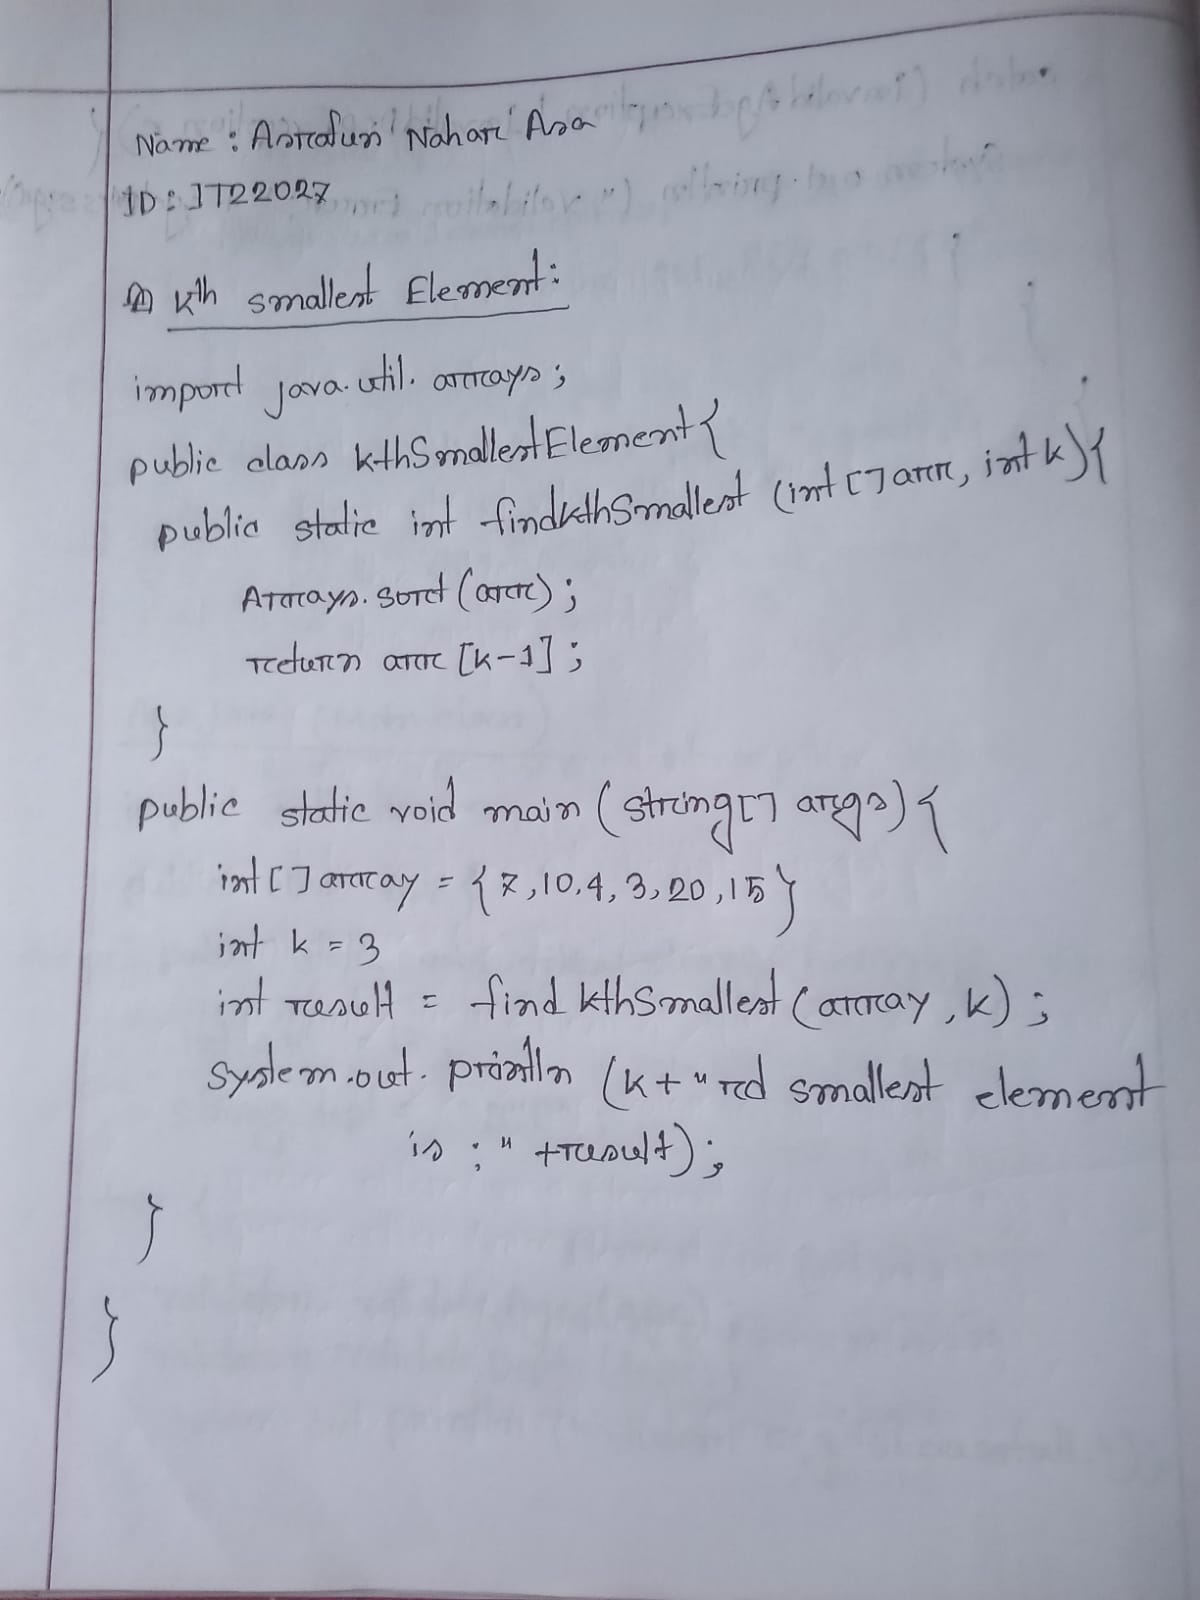 Name : Asrafun Nahar Asa
ID : IT22027
kth smallest Element:
import java.util.arrays;
public class kthSmallestElement{
public static int findkthSmallest (int [] arr, int k){
Arrays.sort (arr);
return arr [k-1];
}
public static void main (string[] args){
int [] array = {7,10,4,3,20,15}
int k = 3
int result = find kthSmallest (array, k);
system.out.println (k+"rd smallest element
is :" +result);
}
}